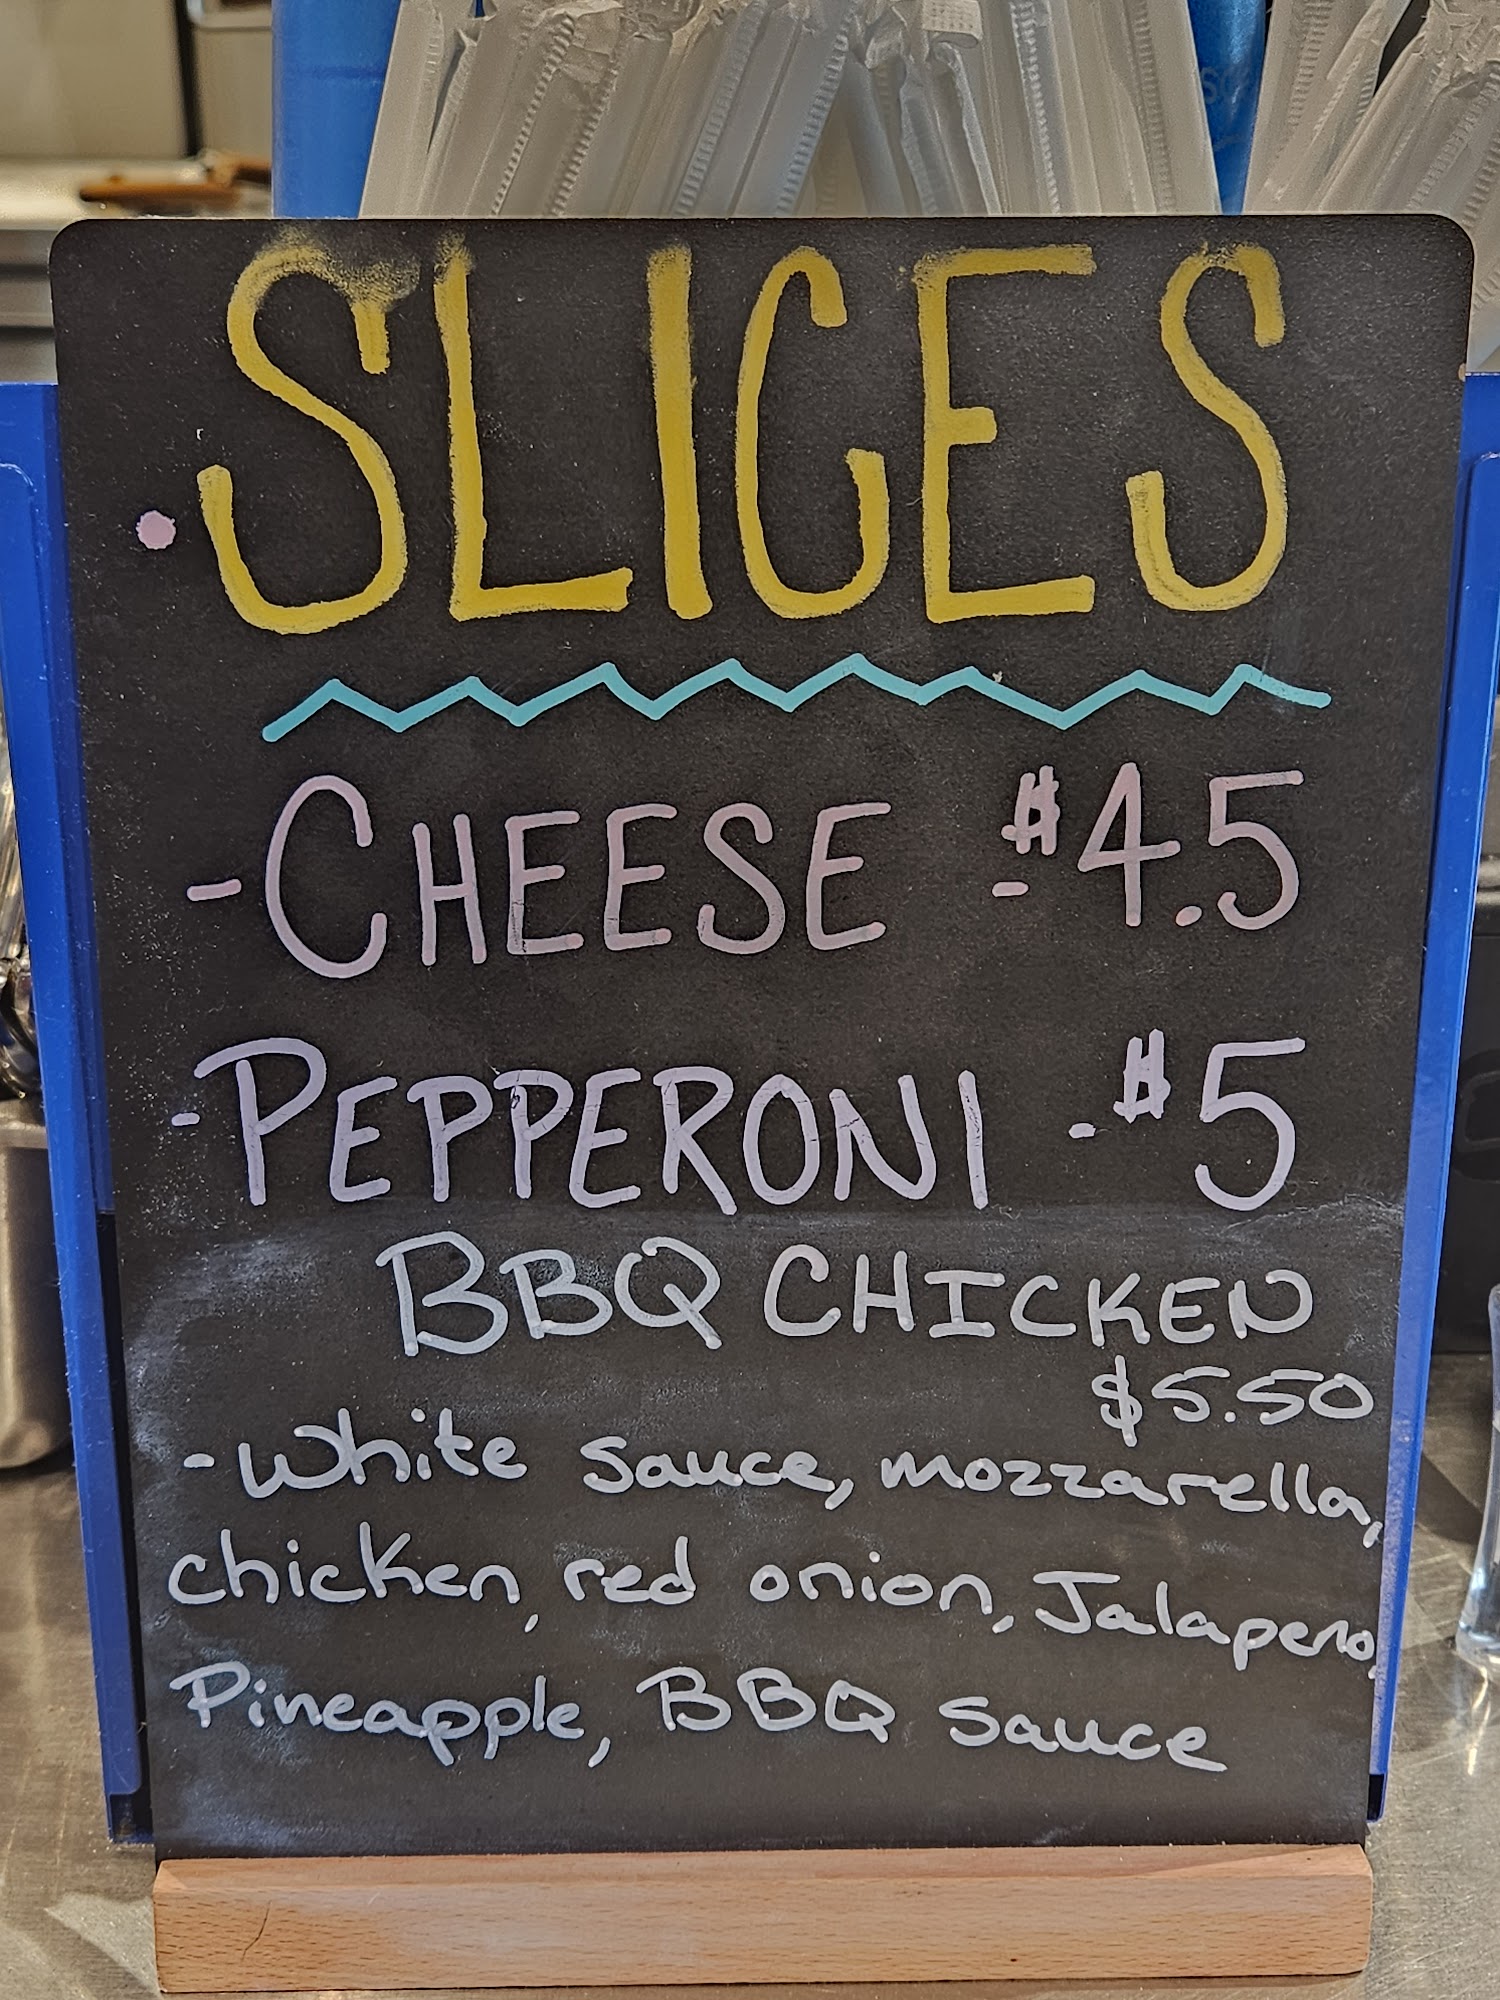 SLICES
- CHEESE - $4.5
- PEPPERONI - $5
BBQ CHICKEN
$5.50
- White sauce, mozzarella,
chicken, red onion, Jalapeno,
Pineapple, BBQ sauce